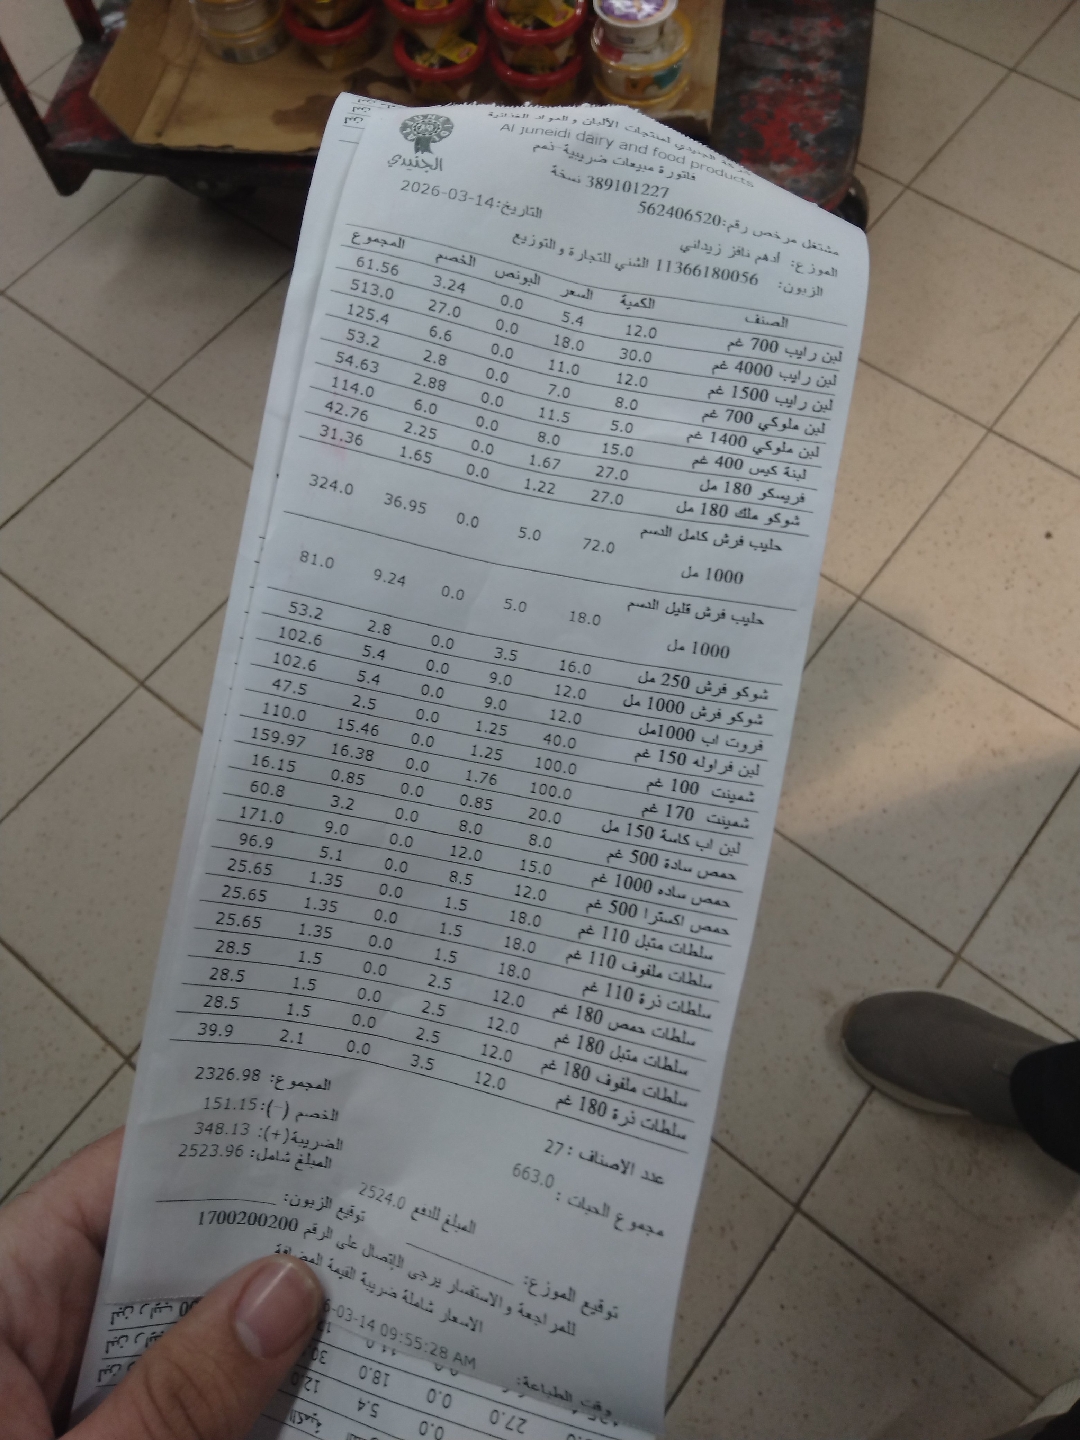 الجنيدي
الجنيدي لمنتجات الألبان والمواد الغذائية
Al Juneidi dairy and food products
فاتورة مبيعات ضريبية-ذمم
389101227 نسخة
مشتغل مرخص رقم:562406520
التاريخ:2026-03-14
الموزع: أدهم نافز زيداني
الزبون: 11366180056 الشني للتجارة والتوزيع
الصنف الكمية السعر البونص الخصم المجموع
لبن رايب 700 غم 12.0 5.4 0.0 3.24 61.56
لبن رايب 4000 غم 30.0 18.0 0.0 27.0 513.0
لبن رايب 1500 غم 12.0 11.0 0.0 6.6 125.4
لبن ملوكي 700 غم 8.0 7.0 0.0 2.8 53.2
لبن ملوكي 1400 غم 5.0 11.5 0.0 2.88 54.63
لبنة كيس 400 غم 15.0 8.0 0.0 6.0 114.0
فريسكو 180 مل 27.0 1.67 0.0 2.25 42.76
شوكو ملك 180 مل 27.0 1.22 0.0 1.65 31.36
حليب فرش كامل الدسم 72.0 5.0 0.0 36.95 324.0
1000 مل
حليب فرش قليل الدسم 18.0 5.0 0.0 9.24 81.0
1000 مل
شوكو فرش 250 مل 16.0 3.5 0.0 2.8 53.2
شوكو فرش 1000 مل 12.0 9.0 0.0 5.4 102.6
فروت اب 1000مل 12.0 9.0 0.0 5.4 102.6
لبن فراوله 150 غم 40.0 1.25 0.0 2.5 47.5
شمينت 100 غم 100.0 1.25 0.0 15.46 110.0
شمينت 170 غم 100.0 1.76 0.0 16.38 159.97
لبن اب كاسة 150 مل 20.0 0.85 0.0 0.85 16.15
حمص سادة 500 غم 8.0 8.0 0.0 3.2 60.8
حمص ساده 1000 غم 15.0 12.0 0.0 9.0 171.0
حمص اكسترا 500 غم 12.0 8.5 0.0 5.1 96.9
سلطات متبل 110 غم 18.0 1.5 0.0 1.35 25.65
سلطات ملفوف 110 غم 18.0 1.5 0.0 1.35 25.65
سلطات ذرة 110 غم 18.0 1.5 0.0 1.35 25.65
سلطات حمص 180 غم 12.0 2.5 0.0 1.5 28.5
سلطات متبل 180 غم 12.0 2.5 0.0 1.5 28.5
سلطات ملفوف 180 غم 12.0 2.5 0.0 1.5 28.5
سلطات ذرة 180 غم 12.0 3.5 0.0 2.1 39.9
المجموع: 2326.98
الخصم (-):151.15
عدد الاصناف :27
الضريبة(+): 348.13
مجموع الحبات : 663.0
المبلغ شامل: 2523.96
المبلغ للدفع 2524.0
توقيع الزبون:
توقيع الموزع:
للمراجعة والاستفسار يرجى الإتصال على الرقم 1700200200
الاسعار شاملة ضريبة القيمة المضافة
وقت الطباعة: 6-03-14 09:55:28 AM